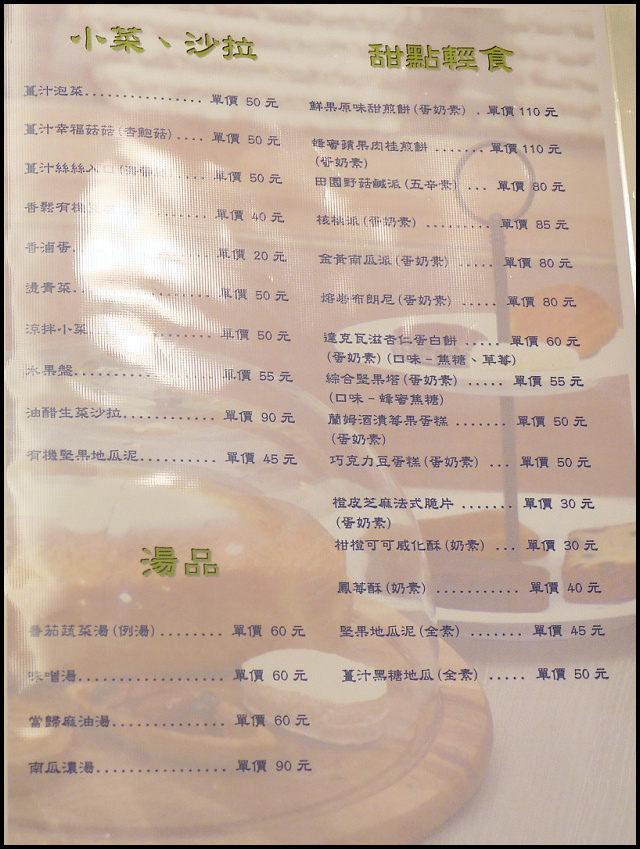 小菜、沙拉
薑汁泡菜................ 單價 50 元
薑汁幸福菇菇(杏鮑菇).... 單價 50 元
薑汁絲絲入口..... 單價 50 元
香鬆有機........ 單價 40 元
香滷蛋................ 單價 20 元
燙青菜................ 單價 50 元
涼拌小菜.............. 單價 50 元
水果盤................ 單價 55 元
油醋生菜沙拉............ 單價 90 元
有機堅果地瓜泥.......... 單價 45 元
湯品
番茄蔬菜湯(例湯)........ 單價 60 元
味噌湯................ 單價 60 元
當歸麻油湯............. 單價 60 元
南瓜濃湯................ 單價 90 元
甜點輕食
鮮果原味甜煎餅(蛋奶素) . 單價 110 元
蜂蜜蘋果肉桂煎餅 ....... 單價 110 元
(蛋奶素)
田園野菇鹹派(五辛素) ... 單價 80 元
核桃派(蛋奶素) ......... 單價 85 元
金黃南瓜派(蛋奶素) ..... 單價 80 元
熔岩布朗尼(蛋奶素) ..... 單價 80 元
達克瓦滋杏仁蛋白餅 ..... 單價 60 元
(蛋奶素)(口味－焦糖、草莓)
綜合堅果塔(蛋奶素) ..... 單價 55 元
(口味－蜂蜜焦糖)
蘭姆酒漬莓果蛋糕 ....... 單價 50 元
(蛋奶素)
巧克力豆蛋糕(蛋奶素) ... 單價 50 元
橙皮芝麻法式脆片 ....... 單價 30 元
(蛋奶素)
柑橙可可威化酥(奶素) ... 單價 30 元
鳳莓酥(奶素) ........... 單價 40 元
堅果地瓜泥(全素) ....... 單價 45 元
薑汁黑糖地瓜(全素) ..... 單價 50 元